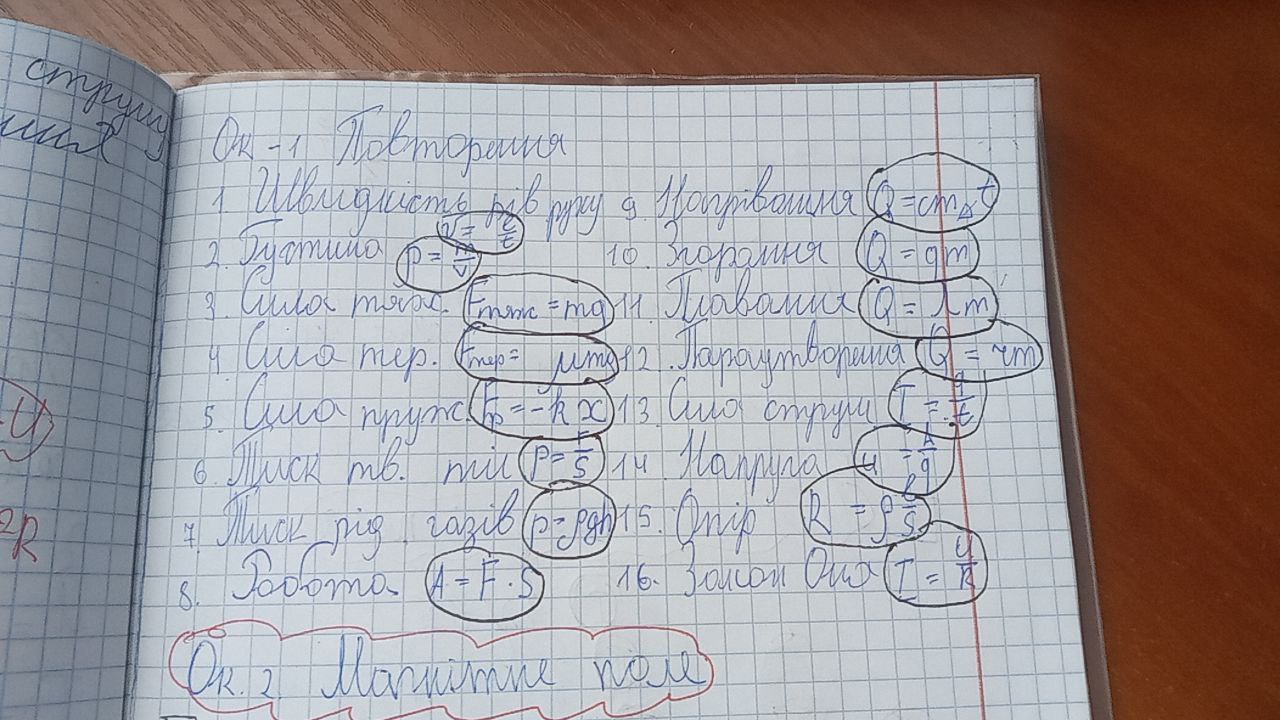 струму
Ок-1 Повторення
1. Швидкість рів руху v = l/t
2. Густина ρ = m/V
3. Сила тяж. Fтяж = mg
4. Сила тер. Fтер = μmg
5. Сила пруж. Fпр = -kx
6. Тиск тв. тіл p = F/S
7. Тиск рід. газів p = ρgh
8. Робота A = F · S
9. Нагрівання Q = cmΔt
10. Згорання Q = qm
11. Плавання Q = λm
12. Пароутворення Q = rm
13. Сила струму I = q/t
14. Напруга U = A/q
15. Опір R = ρ l/S
16. Закон Ома I = U/R
Ок. 2. Магнітне поле